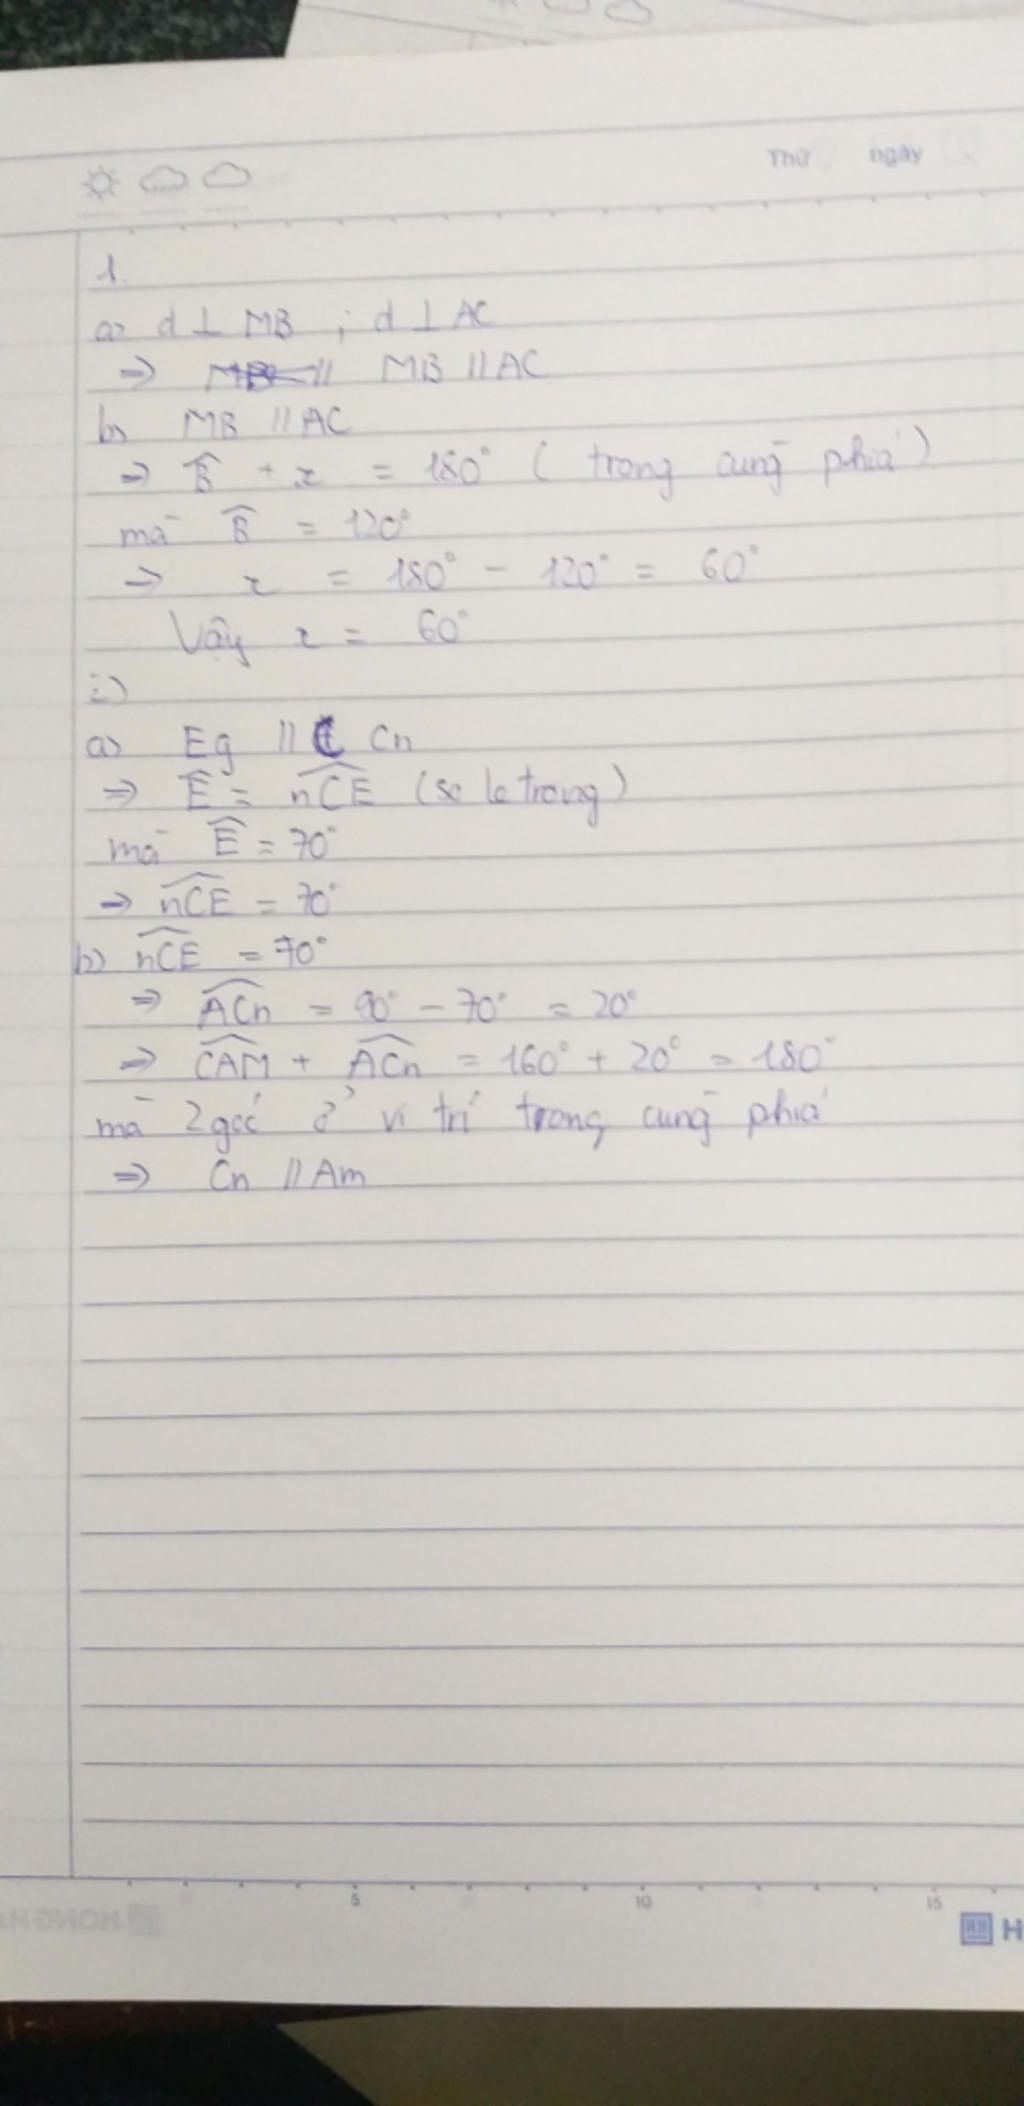 Thứ ngày
1.
a) d ⊥ MB ; d ⊥ AC
⇒ MB // AC
b) MB // AC
⇒ B̂ + x = 180° ( trong cùng phía )
mà B̂ = 120°
⇒ x = 180° - 120° = 60°
Vậy x = 60°
a) Eg // Cn
⇒ Ê = nCE (so le trong)
mà Ê = 70°
⇒ nCE = 70°
b) nCE = 70°
⇒ ACn = 90° - 70° = 20°
⇒ CAM + ACn = 160° + 20° = 180°
mà 2 góc ở vị trí trong cùng phía
⇒ Cn // Am
5 10 15
H